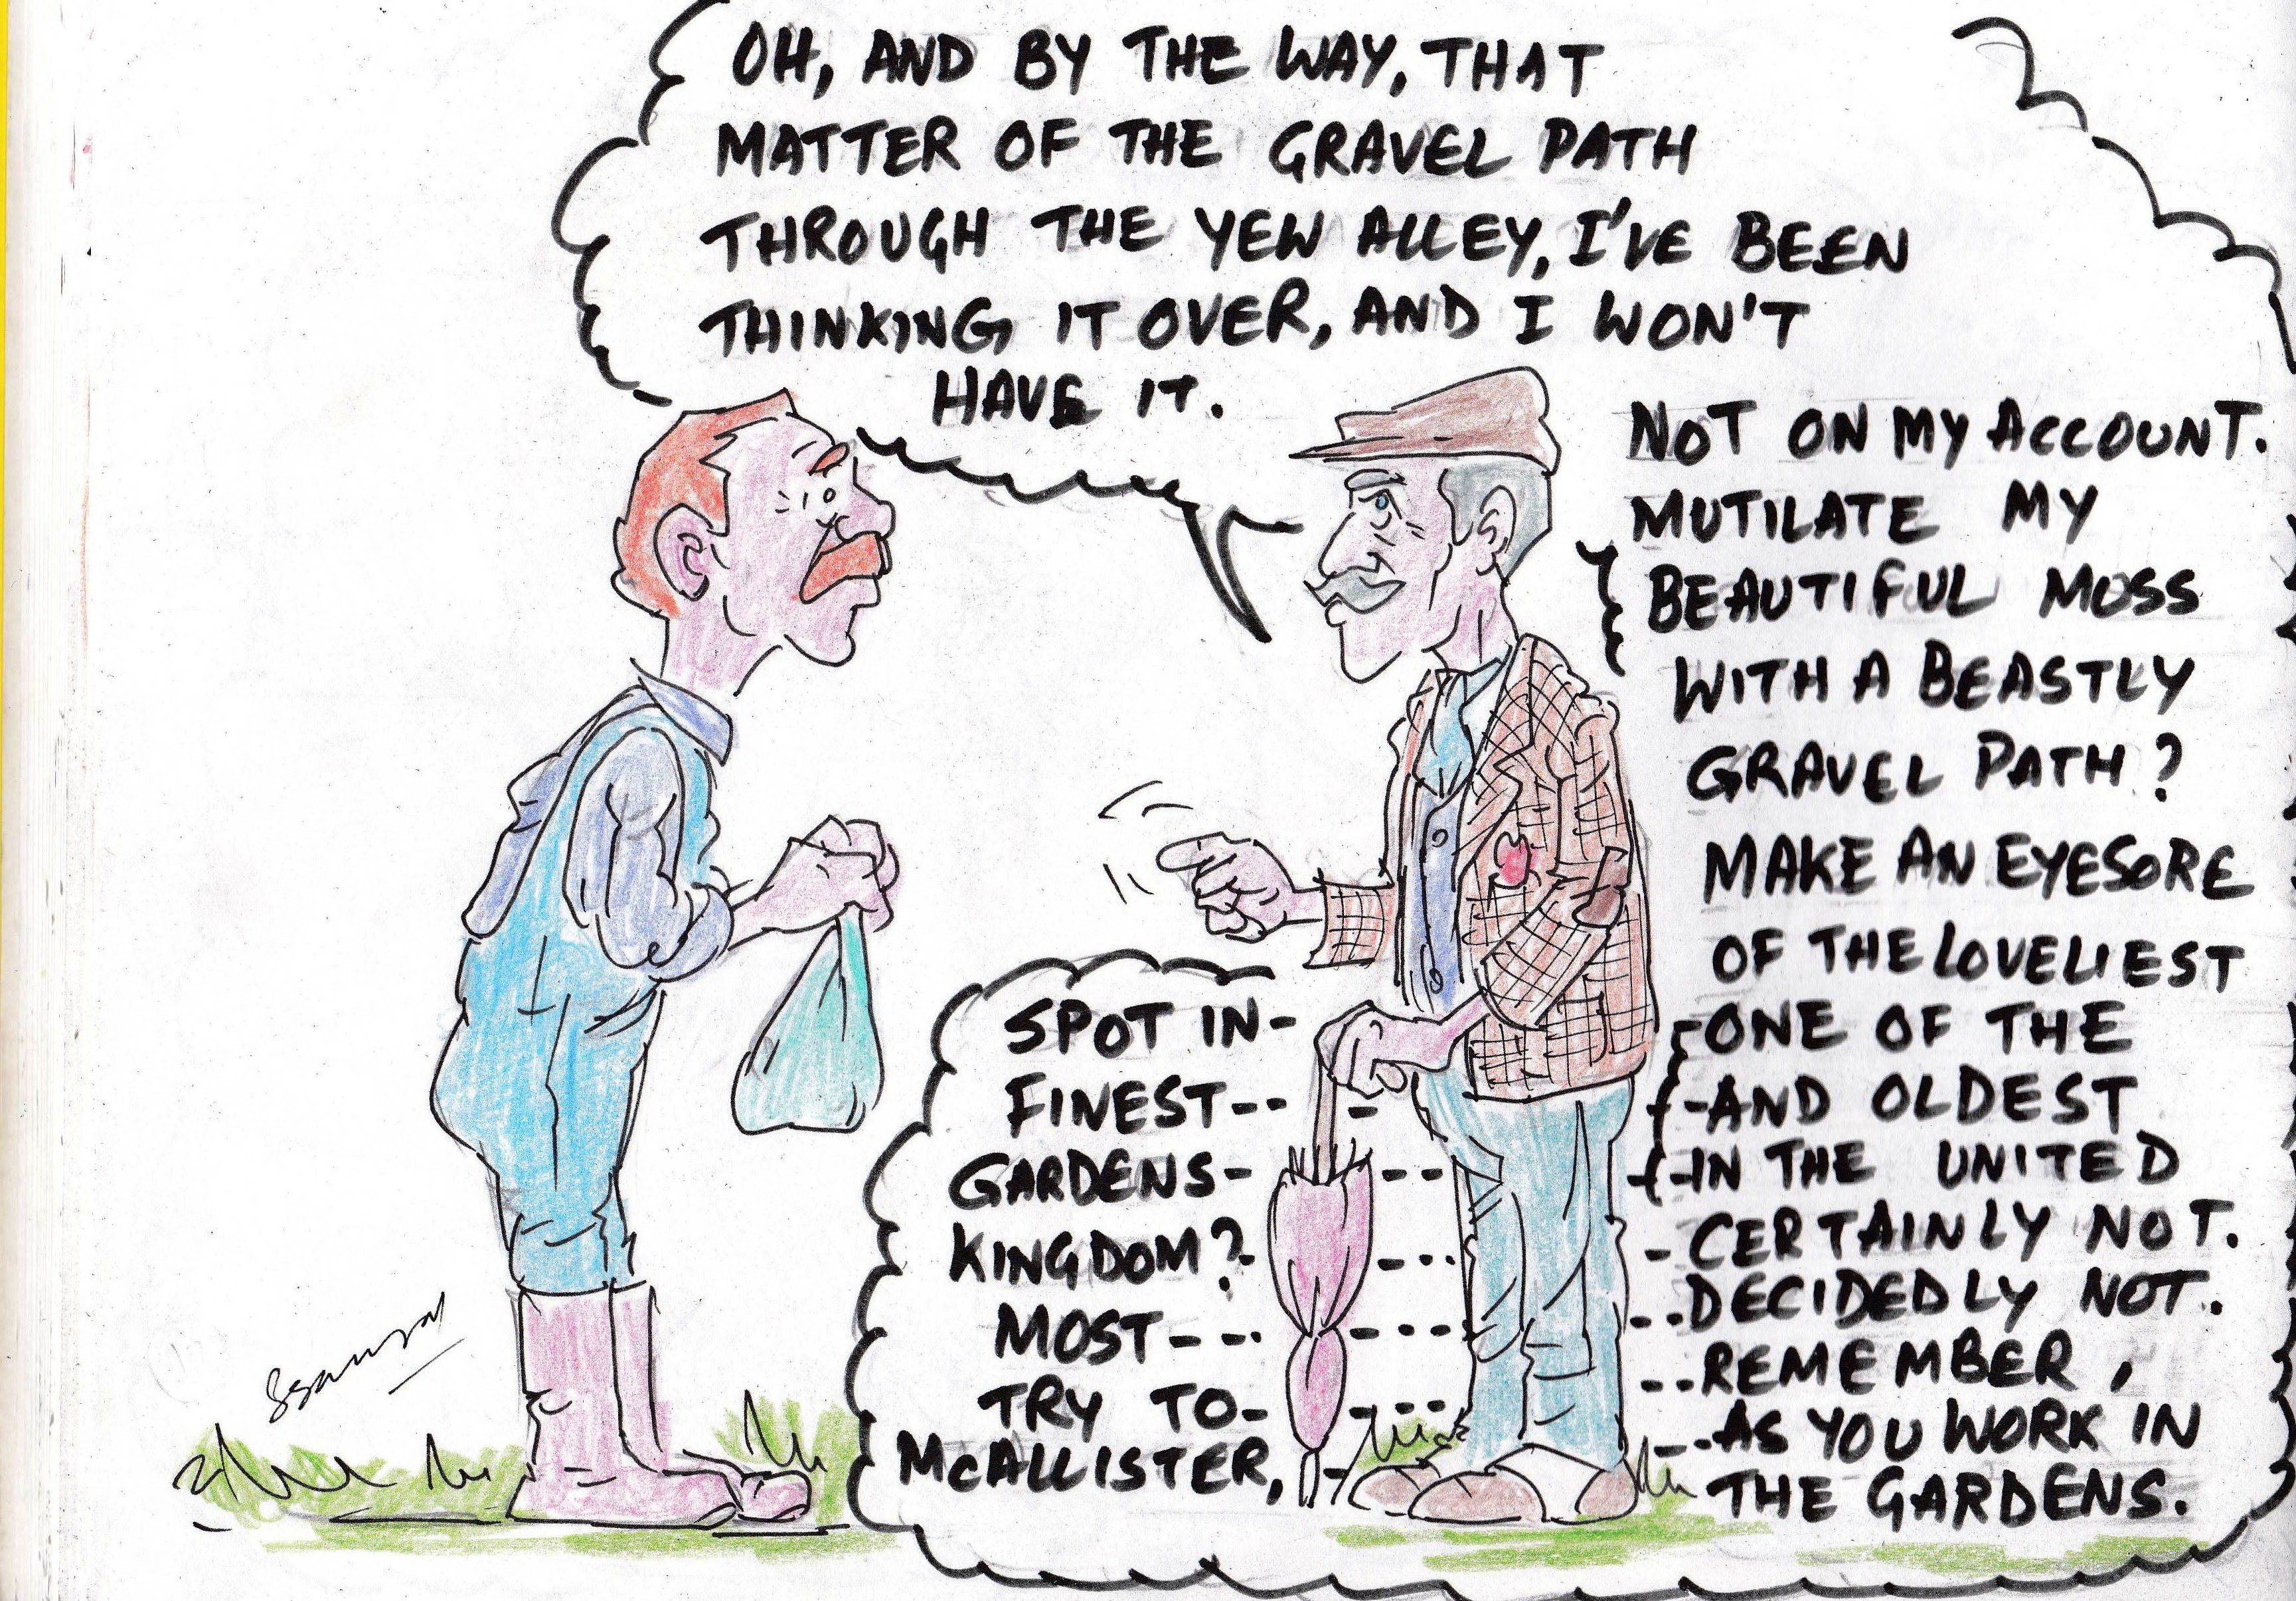 OH, AND BY THE WAY, THAT
MATTER OF THE GRAVEL PATH
THROUGH THE YEW ALLEY, I'VE BEEN
THINKING IT OVER, AND I WON'T
HAVE IT.
NOT ON MY ACCOUNT.
MUTILATE MY
BEAUTIFUL MOSS
WITH A BEASTLY
GRAVEL PATH?
MAKE AN EYESORE
OF THE LOVELIEST
SPOT IN- -ONE OF THE
FINEST-- - --AND OLDEST
GARDENS- --- --IN THE UNITED
KINGDOM?- --- -CERTAINLY NOT.
MOST--- ---- --DECIDEDLY NOT.
TRY TO- ---- --REMEMBER,
McALLISTER, - ---AS YOU WORK IN
THE GARDENS.